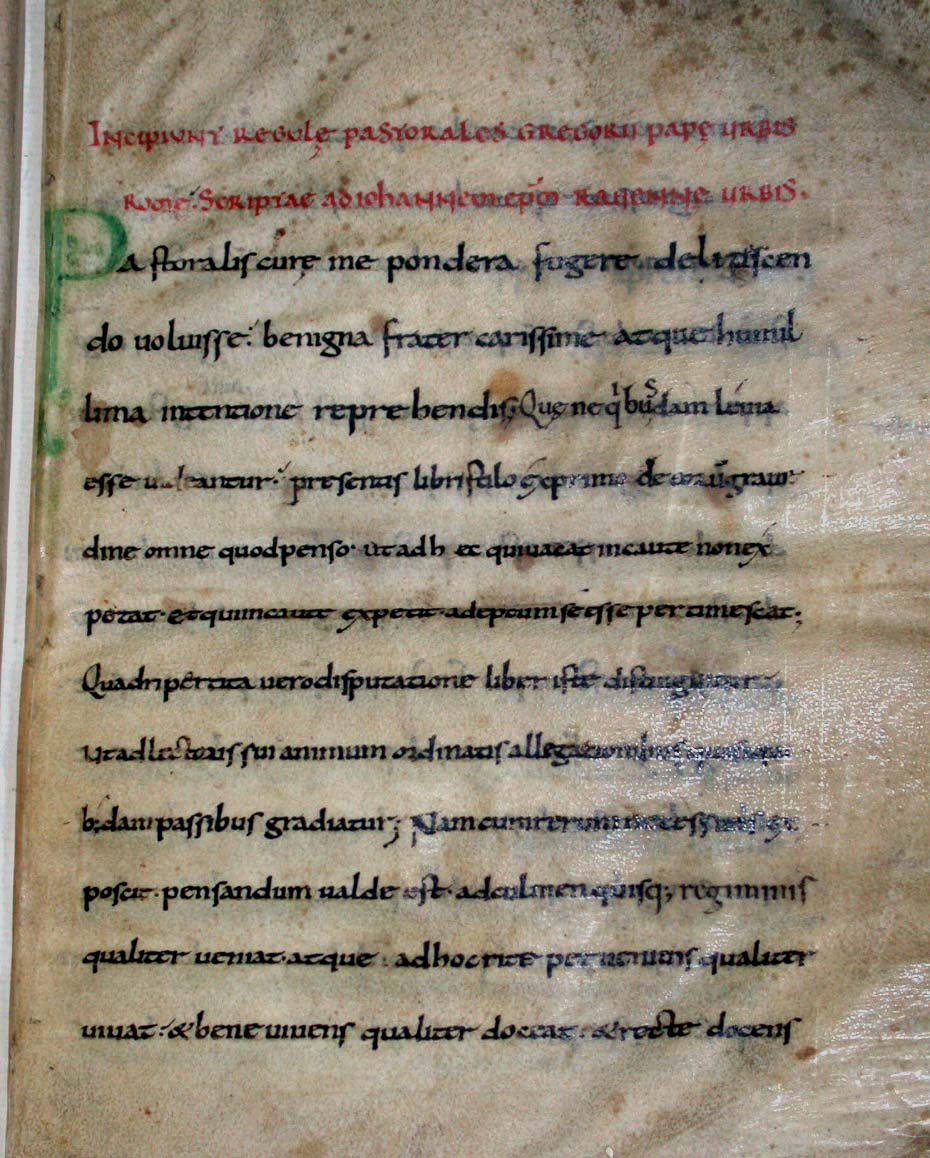 INCIPIUNT REGULĘ PASTORALES GREGORII PAPĘ URBIS
ROMĘ. SCRIPTAE AD IOHANNEM EP̄M RAUENNE URBIS.
Pastoralis curę me pondera fugere delitiscen
do uoluisse. benigna frater carissime atque humil
lima intentione reprehendis; Quę ne qibusdam leuia
esse uideantur. presentis libri stilo exprimo de eorū graui
dine omne quod penso. ut ad hęc qui uacat incaute non ex
petat. et qui incaute expetit adeptum se esse pertimescat;
Quadripertita uero disputatione liber iste distinguitur
ut ad lectoris sui animum ordinatis allegationibus quasi qui
b;dam passibus gradiatur; Nam cum rerum necessitas ex
poscit. pensandum ualde est. ad culmen quisq; regiminis
qualiter ueniat. atque ad hoc rite perueniens qualiter
uiuat. & bene uiuens qualiter doceat. & recte docens